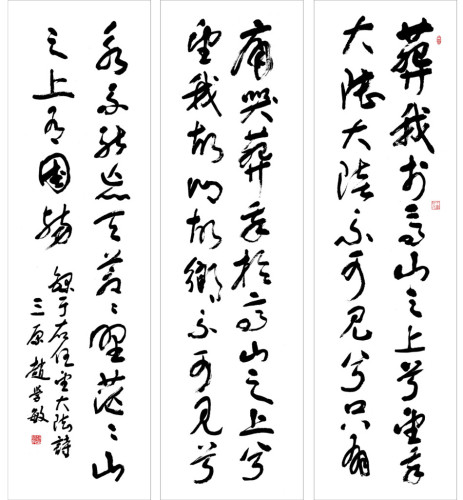 葬我於高山之上兮望我
大陸大陸不可見兮只有
痛哭葬我於高山之上兮
望我故鄉故鄉不可見兮
永不能忘天蒼〻野茫〻山
之上有國殤
錄于右任望大陸詩
三原趙學敏